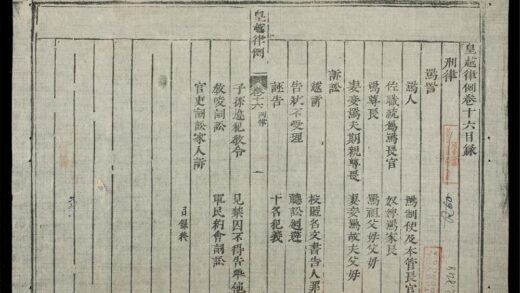 皇越律例卷十六目錄
刑律
罵詈
罵人 罵制使及本管長官
佐職統屬罵長官 奴婢罵家長
罵尊長 罵祖父母父母
妻妾罵夫期親尊長 妻妾罵故夫父母
訴訟
越訴 投匿名文書告人罪
告狀不受理 聽訟迴避
誣告 干名犯義
皇越律例 卷十六 刑律 一
子孫違犯教令 見禁囚不得告舉他
教唆詞訟 軍民約會詞訟
官吏詞訟家人訴
目錄終